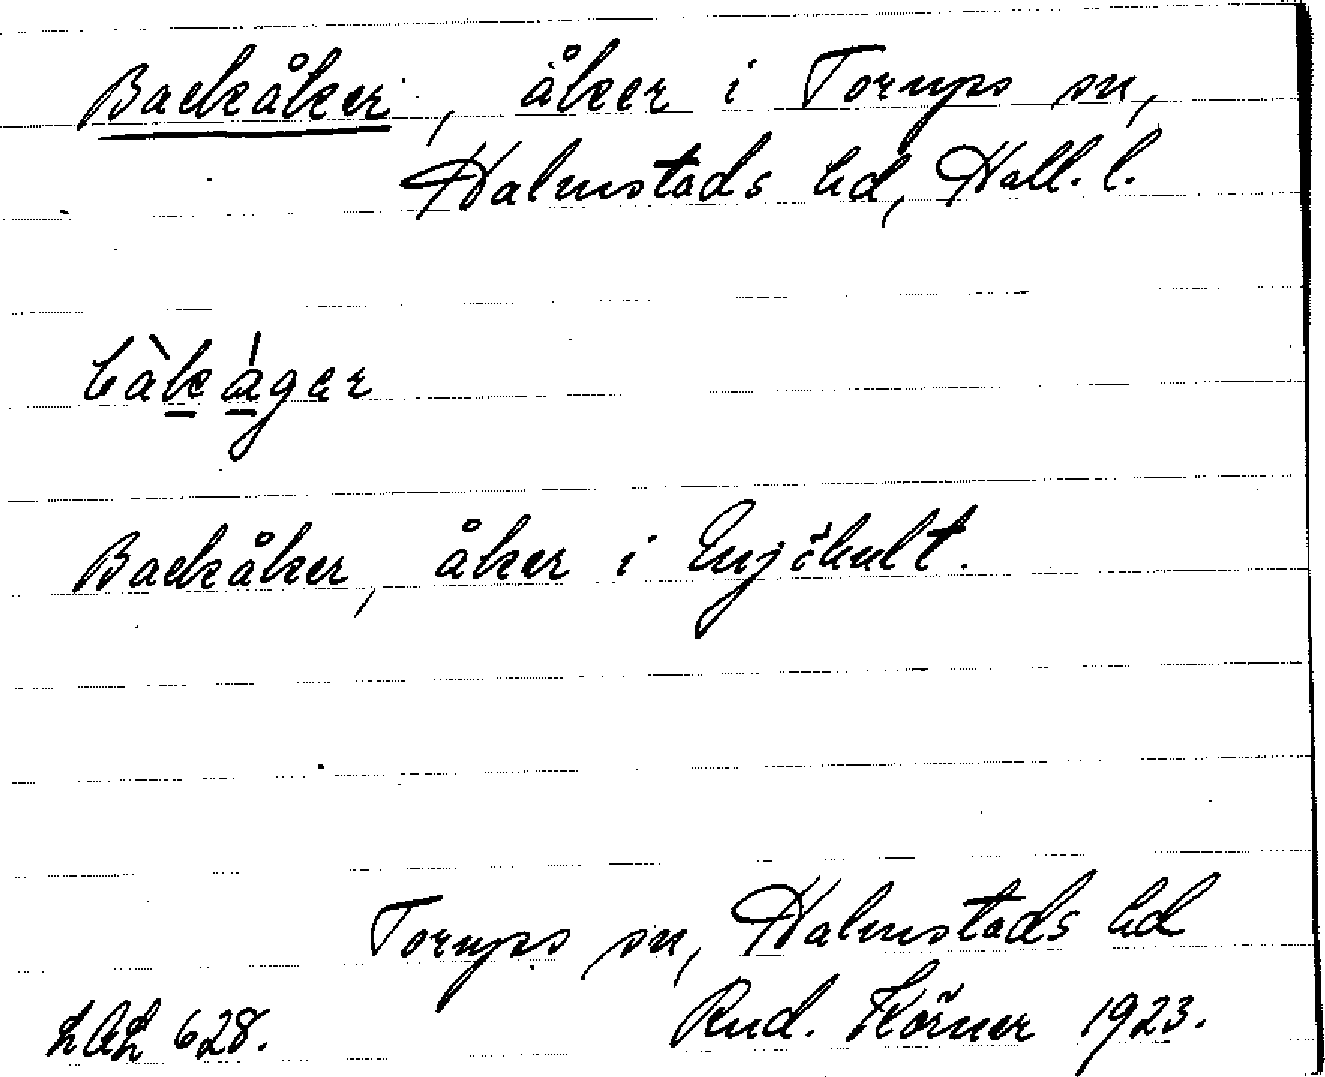 Backåker, åker i Torups sn,
Halmstads hd, Hall. l.
bàkágar
Backåker, åker i
Torups sn, Halmstads hd
Rud. Körner 1923.
628.